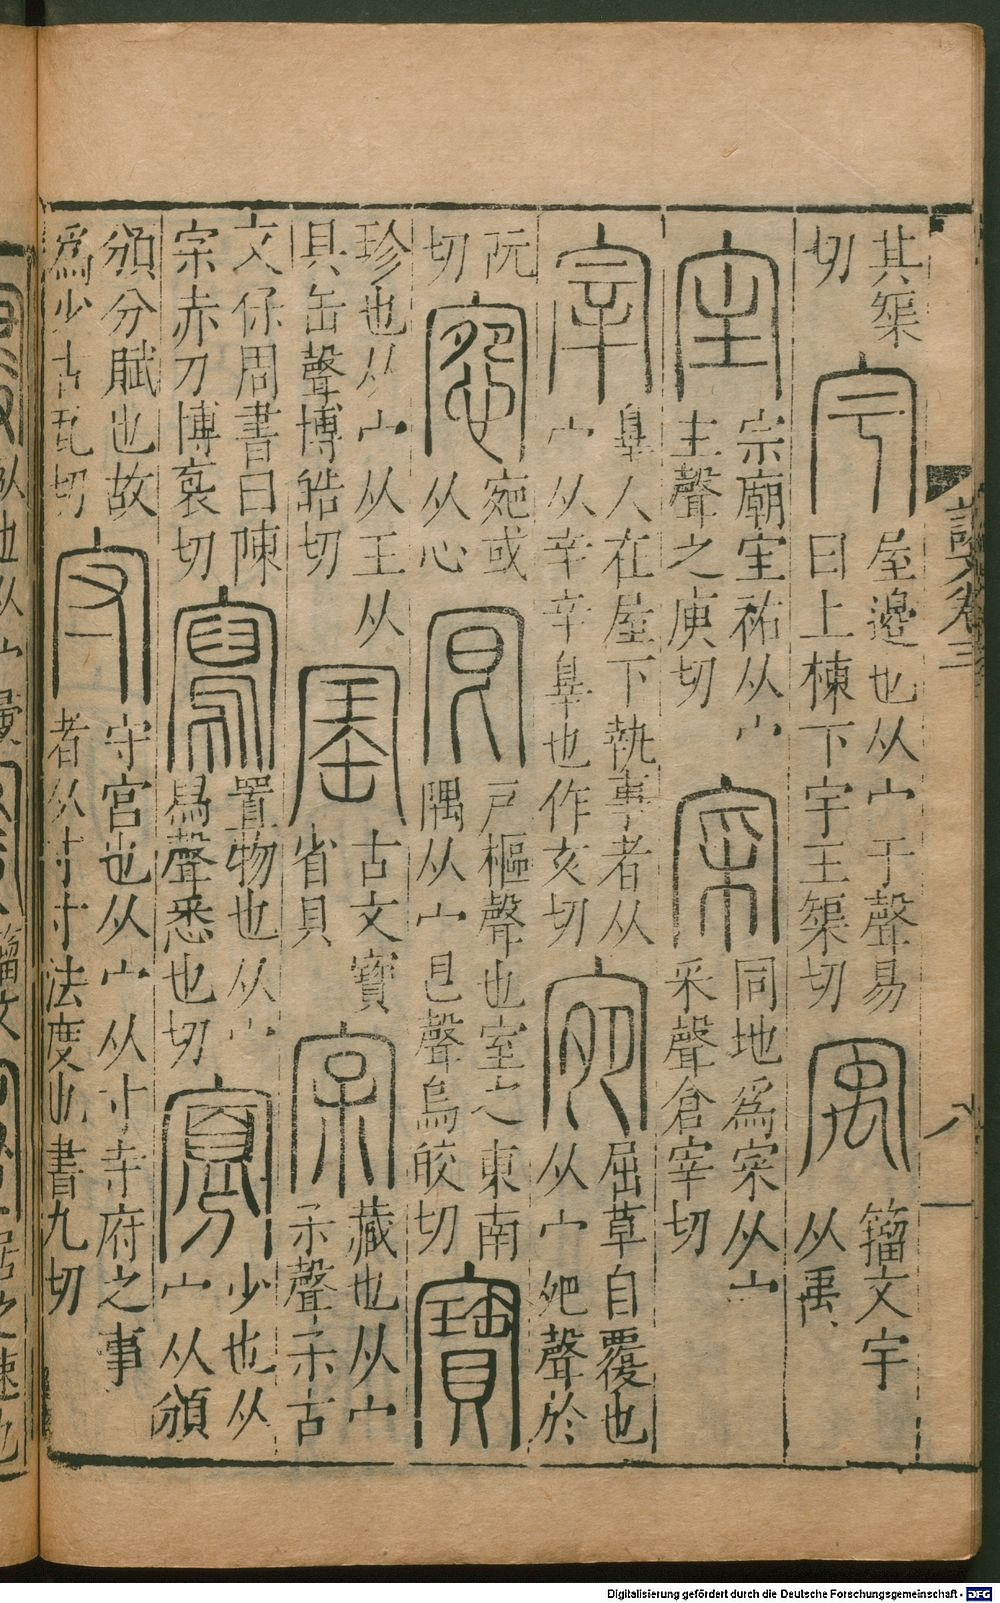 其榘
切
宇
屋邉也从宀于聲易
曰上棟下宇王榘切
㝢
籀文宇
从禹
宔
宗廟宔祏从宀
主聲之庾切
宷
同地為宷从宀
采聲倉宰切
宰
辠人在屋下執事者从
宀从辛辛辠也作亥切
宛
屈草自覆也
从宀夗聲於
阮
切
惌
宛或
从心
㝔
戸樞聲也室之東南
隅从宀㫐聲烏皎切
寶
珍也从宀从王从
貝缶聲博皓切
古文寶
省貝
宲
藏也从宀
𤓽聲𤓽古
文保周書曰陳
宲赤刀博袌切
寫
置物也从宀
舄聲悉也切
寡
少也从
宀从頒
頒分賦也故
爲少古瓦切
守
守官也从宀从寸寺府之事
者从寸寸法度也書九切
說文卷三
八
Digitalisierung gefördert durch die Deutsche Forschungsgemeinschaft - DFG